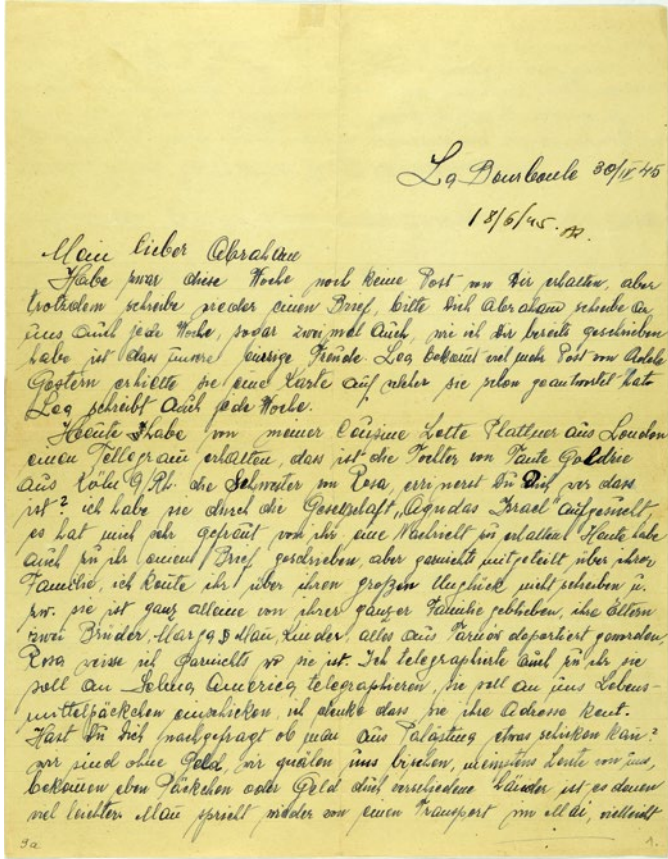 La Bourboule 30/IV 45
18/6/45.
Mein lieber Abraham
Habe zwar diese Woche noch keine Post von Dir erhalten, aber
trotzdem schreibe wieder einen Brief, bitte Dich Abraham schreibe an
uns auch jede Woche, sogar zweimal auch, wie ich Dir bereits geschrieben
habe ist dass unsere einzige Freude. Lea bekomt viel mehr Post von Adele
Gestern erhielte sie eine Karte auf welcher sie schon geantwortet hat.
Lea schreibt auch jede Woche.
Heute habe von meiner Cousine Lotte Plattner aus London
einen Tellegram erhalten, dass ist die Tochter von Tante Goldzie
aus Köln a/Rh. die Schwester von Rosa, errinerst Du Dich wer dass
ist? ich habe sie durch die Gesellschaft „Agudas Israel" aufgesucht,
es hat mich sehr gefreut von ihr eine Nachricht zu erhalten. Heute habe
auch zu ihr einen Brief geschrieben, aber garnichts mitgeteilt über ihrer
Familie, ich konte ihr über ihren großen Unglück nicht schreiben u.
zw. sie ist ganz alleine von ihrer ganzer Familie geblieben, ihre Eltern
zwei Brüder, Marga Mann, Kinder, alles aus Tarnow deportiert geworden,
Rosa weiss ich garnichts wo sie ist. Ich telegraphierte auch zu ihr sie
soll an Selma America telegraphieren, sie soll an uns Lebens-
mittelpäckchen einschicken, ich denke dass sie ihre Adresse kent.
Hast Du Dich nachgefragt ob man aus Palästina etwas schicken kan?
wir sind ohne Geld, wir quälen uns bischen, meinstens Leute von uns,
bekomen eben Päckchen oder Geld durch verschiedene Länder ist es denen
viel leichter. Man spricht wieder von einen Transport im Mai, vielleicht
9a
1.